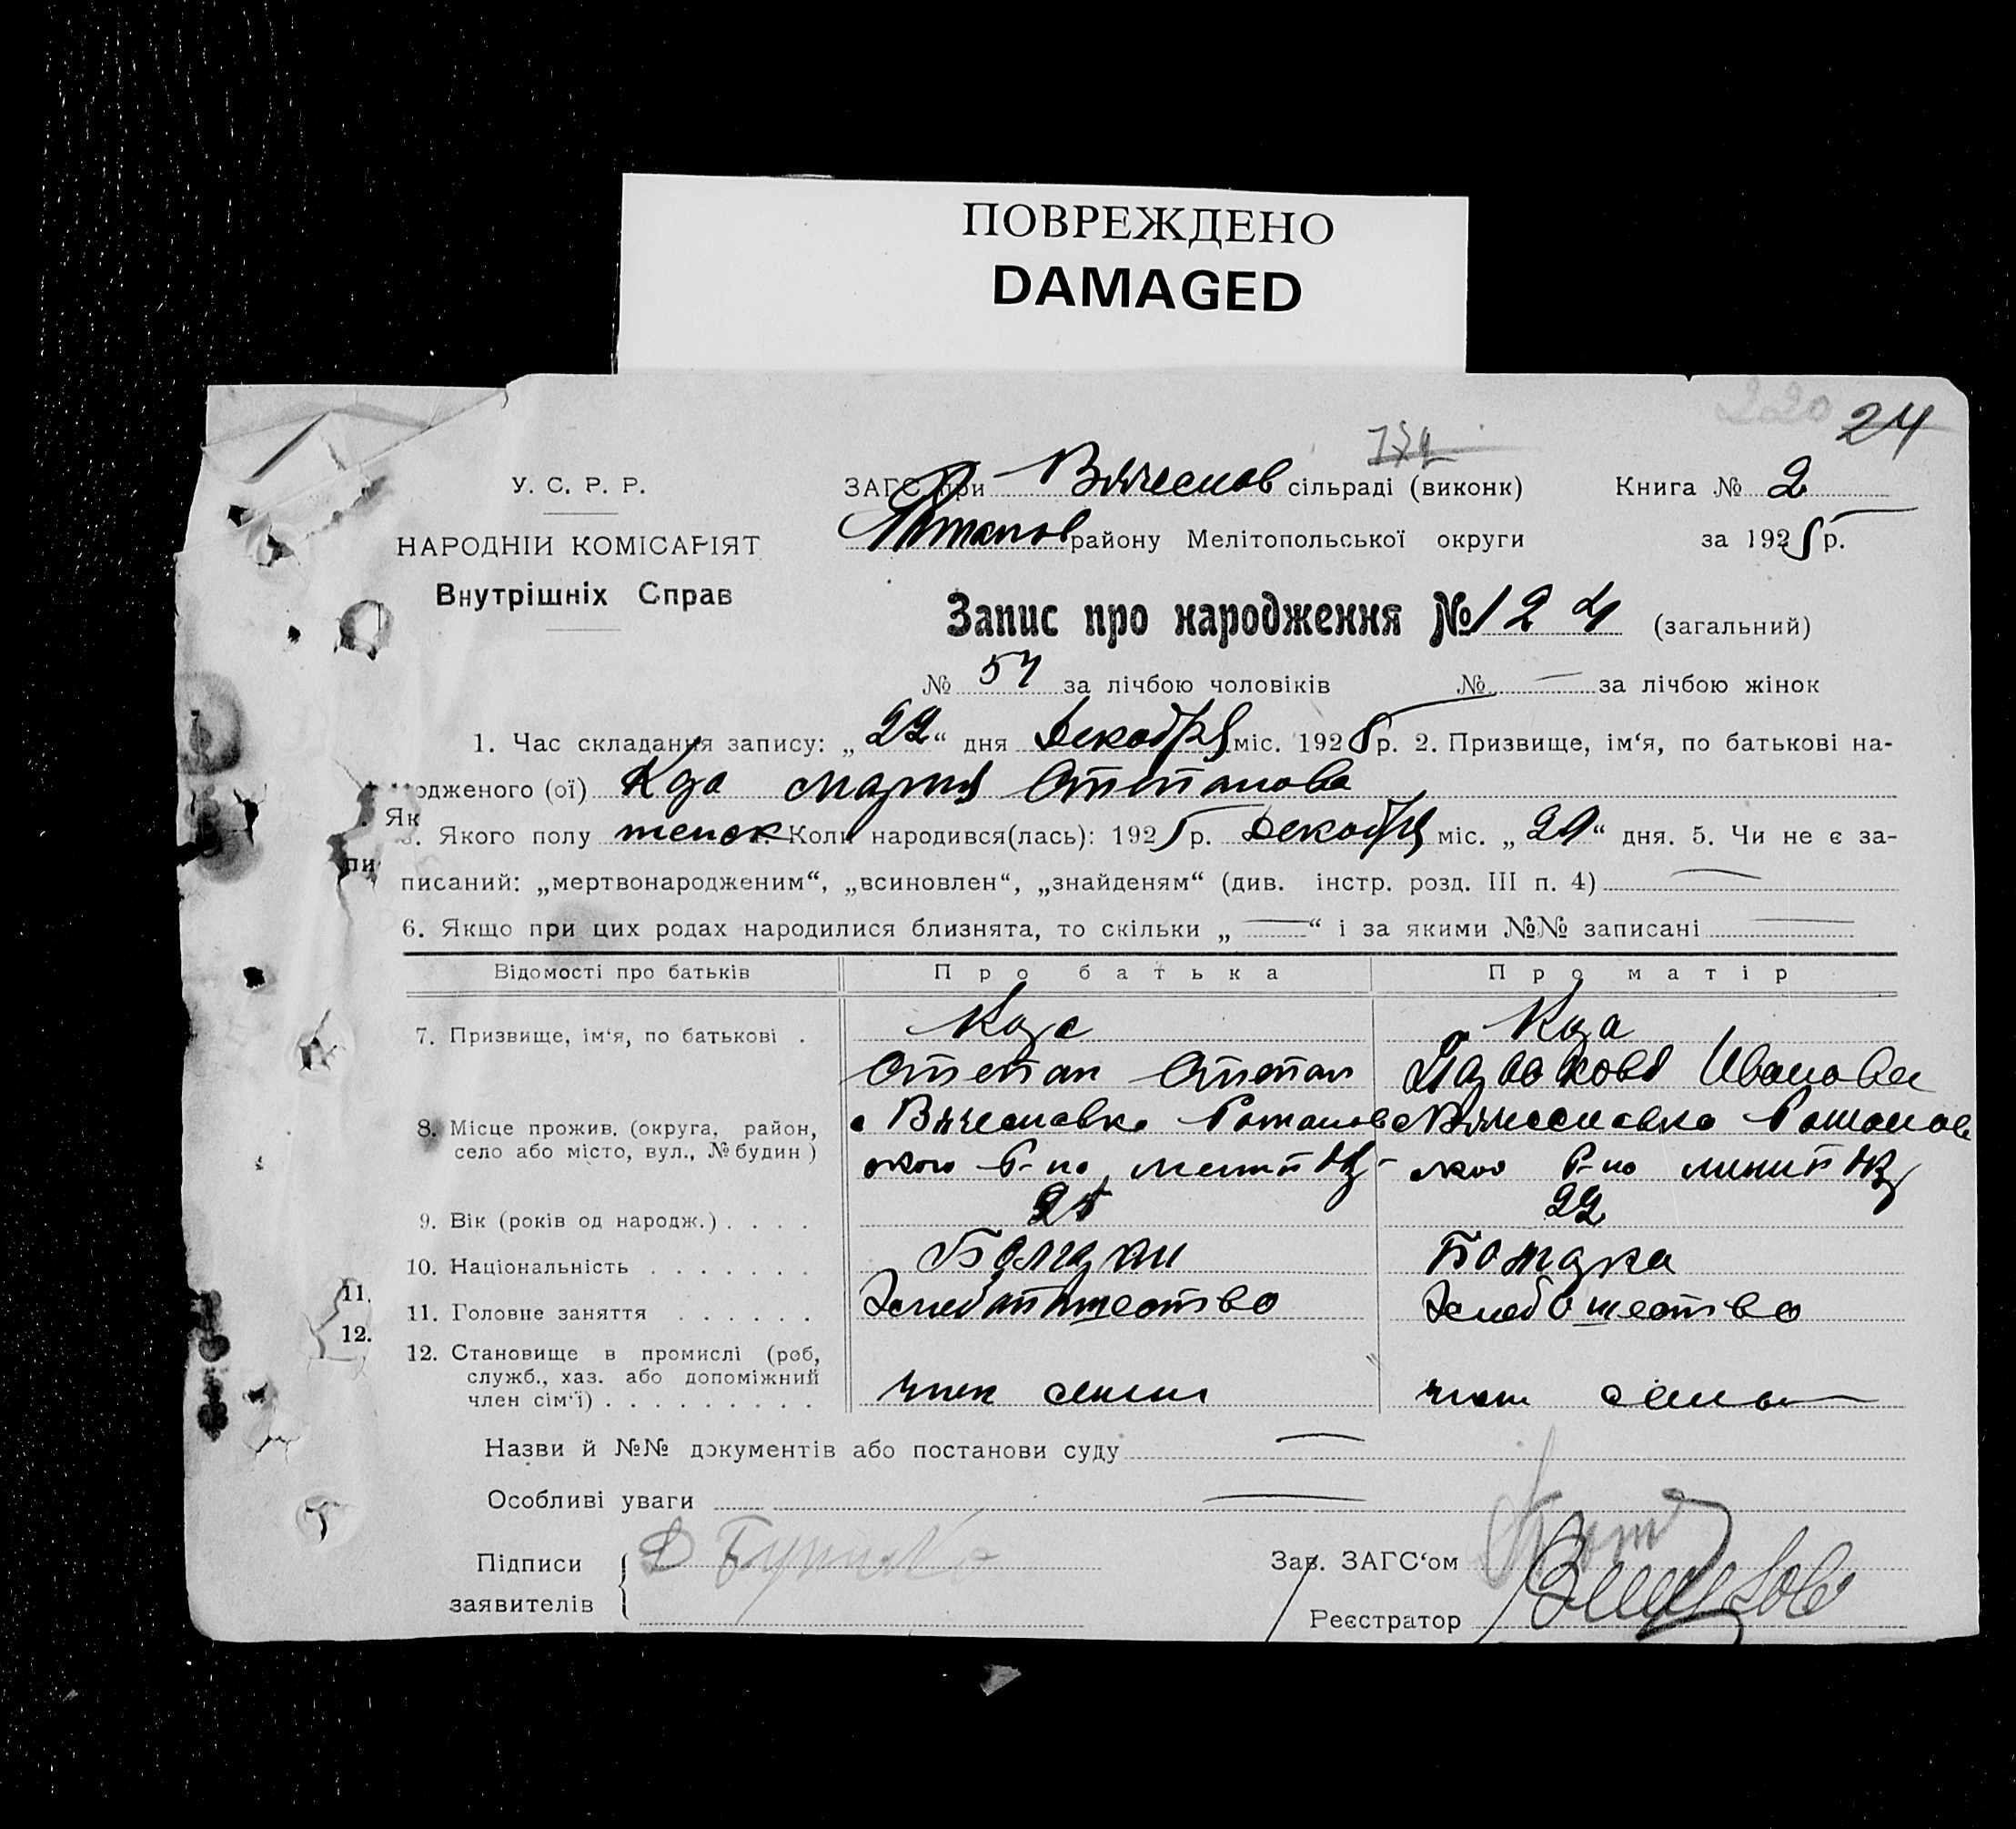 ПОВРЕЖДЕНО
DAMAGED
24
У. С. Р. Р.
ЗАГС при Вячеслов сільраді (виконк) Книга № 2
НАРОДНІЙ КОМІСАРІЯТ
району Мелітопольської округи за 1925 р.
Внутрішніх Справ
Запис про народження № 124 (загальний)
№ 57 за лічбою чоловіків № — за лічбою жінок
1. Час складання запису: „22“ дня Декабря міс. 1925 р. 2. Призвище, ім‘я, по батькові на-
одженого (ої) Мария Степанова
Як
Якого полу женск Коли народився(лась): 1925 р. Декабря міс. „21“ дня. 5. Чи не є за-
пи
писаний: „мертвонародженим“, „всиновлен“, „знайденям“ (див. інстр. розд. III п. 4) —
6. Якщо при цих родах народилися близнята, то скільки „—“ і за якими №№ записані —
Відомості про батьків Про батька Про матір
7. Призвище, ім‘я, по батькові .
Степан Степан Ивановна
8. Місце прожив. (округа, район, с Вячеславка Романов с Вячеславка Романов
село або місто, вул., № будин) ского Р-на ского Р-на
9. Вік (років од народж.) . . . . 25 22
10. Національність . . . . . . . Болгарин Болгарка
11.
11. Головне заняття . . . . . . Хлебопашество Хлебопашество
12.
12. Становище в промислі (роб,
служб., хаз. або допоміжний
член сім‘ї) . . . . . . . . . член семьи член семьи
Назви й №№ документів або постанови суду —
Особливі уваги —
Підписи
заявителів
Зав. ЗАГС‘ом
Реєстратор